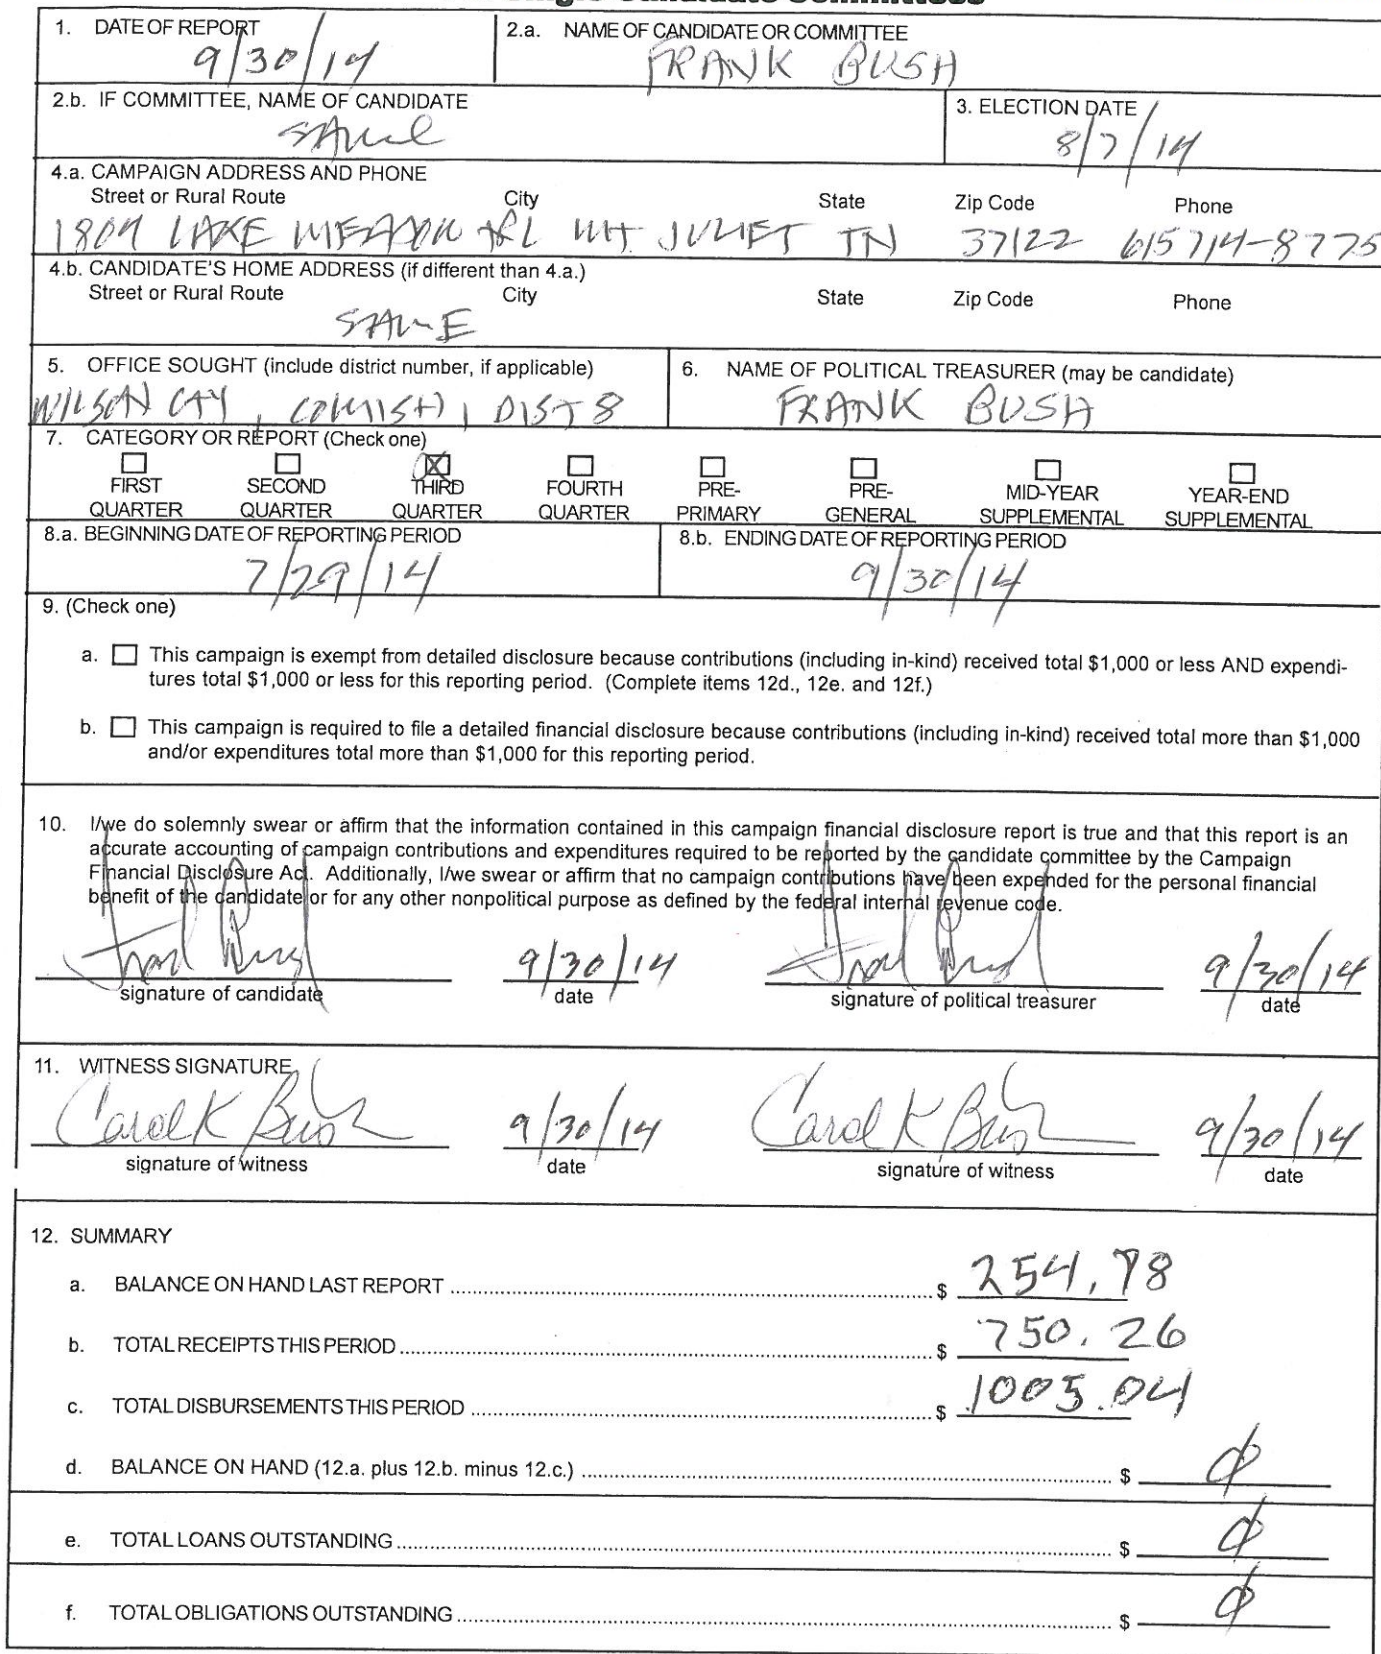 Single Candidate Committees
1. DATE OF REPORT
9/30/14
2.a. NAME OF CANDIDATE OR COMMITTEE
FRANK BUSH
2.b. IF COMMITTEE, NAME OF CANDIDATE
SAME
3. ELECTION DATE
8/7/14
4.a. CAMPAIGN ADDRESS AND PHONE
Street or Rural Route City State Zip Code Phone
1809 LAKE MEADOW MT JULIET TN 37122 615 714-8775
4.b. CANDIDATE'S HOME ADDRESS (if different than 4.a.)
Street or Rural Route City State Zip Code Phone
SAME
5. OFFICE SOUGHT (include district number, if applicable)
WILSON CTY, COMISH, DIST 8
6. NAME OF POLITICAL TREASURER (may be candidate)
FRANK BUSH
7. CATEGORY OR REPORT (Check one)
FIRST QUARTER
SECOND QUARTER
THIRD QUARTER
FOURTH QUARTER
PRE-PRIMARY
PRE-GENERAL
MID-YEAR SUPPLEMENTAL
YEAR-END SUPPLEMENTAL
8.a. BEGINNING DATE OF REPORTING PERIOD
7/29/14
8.b. ENDING DATE OF REPORTING PERIOD
9/30/14
9. (Check one)
a. This campaign is exempt from detailed disclosure because contributions (including in-kind) received total $1,000 or less AND expendi-
tures total $1,000 or less for this reporting period. (Complete items 12d., 12e. and 12f.)
b. This campaign is required to file a detailed financial disclosure because contributions (including in-kind) received total more than $1,000
and/or expenditures total more than $1,000 for this reporting period.
10. I/we do solemnly swear or affirm that the information contained in this campaign financial disclosure report is true and that this report is an
accurate accounting of campaign contributions and expenditures required to be reported by the candidate committee by the Campaign
Financial Disclosure Act. Additionally, I/we swear or affirm that no campaign contributions have been expended for the personal financial
benefit of the candidate or for any other nonpolitical purpose as defined by the federal internal revenue code.
Frank Bush 9/30/14 Frank Bush 9/30/14
signature of candidate date signature of political treasurer date
11. WITNESS SIGNATURE
Carol K Bush 9/30/14 Carol K Bush 9/30/14
signature of witness date signature of witness date
12. SUMMARY
a. BALANCE ON HAND LAST REPORT $ 254.78
b. TOTAL RECEIPTS THIS PERIOD $ 750.26
c. TOTAL DISBURSEMENTS THIS PERIOD $ 1005.04
d. BALANCE ON HAND (12.a. plus 12.b. minus 12.c.) $ 0
e. TOTAL LOANS OUTSTANDING $ 0
f. TOTAL OBLIGATIONS OUTSTANDING $ 0